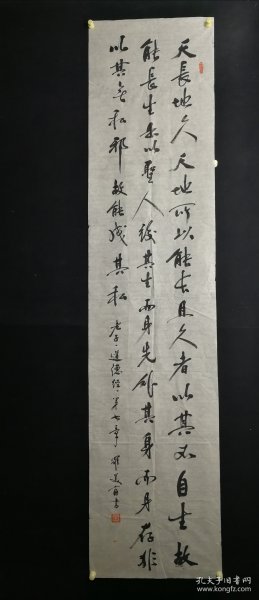 天長地久天地所以能長且久者以其不自生故
能長生是以聖人後其身而身先外其身而身存非
以其無私邪故能成其私
老子道德经第七章
孔夫子旧书网